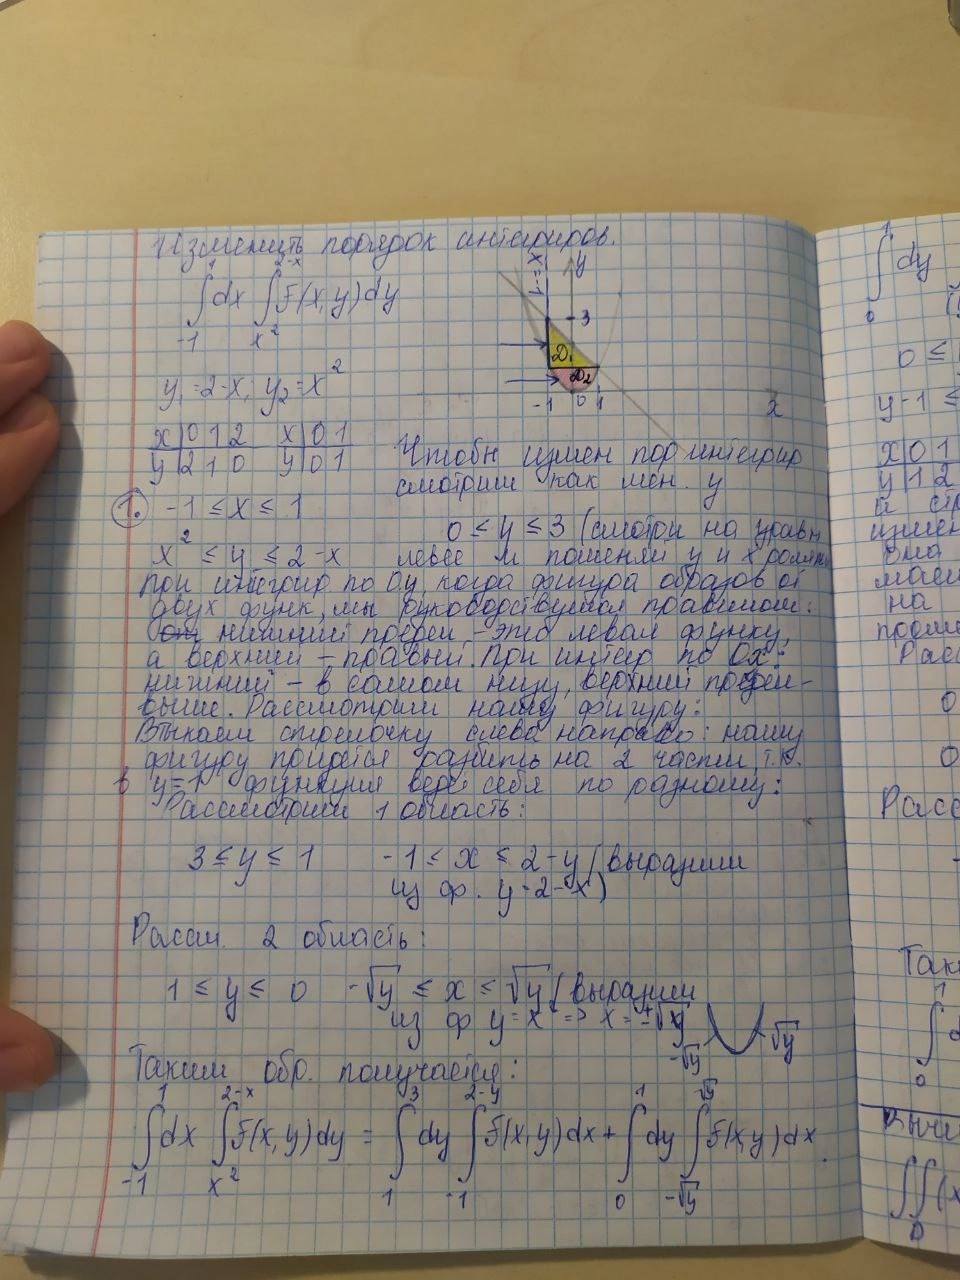 Изменить порядок интегриров.
∫₋₁¹ dx ∫ₓ²²⁻ˣ F(x,y)dy
x=-1
y
3
D₁
D₂
-1 0 1
x
y₁=2-x, y₂=x²
x|0 1 2 x|0 1
y|2 1 0 y|0 1
Чтобы измен пор интегрир
смотрим как мен. y
1. -1 ≤ x ≤ 1
0 ≤ y ≤ 3 (смотри на уравн
x² ≤ y ≤ 2-x левее и поменяй y и x
При интегрир по Oy когда фигура образов от
двух функ, мы руководствуемся правилом:
нижний предел - это левая функц,
а верхний - правый. При интегр по Ox:
нижний - в самом низу, верхний предел-
выше. Рассмотрим нашу фигуру:
Втыкаем стрелочку слева направо: нашу
фигуру придётся разбить на 2 части т.к.
в y=1 функция ведёт себя по разному:
Рассмотрим 1 область:
3 ≤ y ≤ 1 -1 ≤ x ≤ 2-y (выразили
из ф. y=2-x)
Рассм. 2 область:
1 ≤ y ≤ 0 -√y ≤ x ≤ √y (выразили
из ф y=x² => x=±√y
-√y √y
Таким обр. получается:
∫₋₁¹ dx ∫ₓ²²⁻ˣ F(x,y)dy = ∫₁³ dy ∫₋₁²⁻ʸ F(x,y)dx + ∫₀¹ dy ∫_{-√y}^{√y} F(x,y)dx.
∫₀¹ dy
0 ≤
y-1 ≤
x|0 1
y|1 2
на
Расс
0
0
Расс
Таки
∫₀¹
Вычи
∫∫_D (x